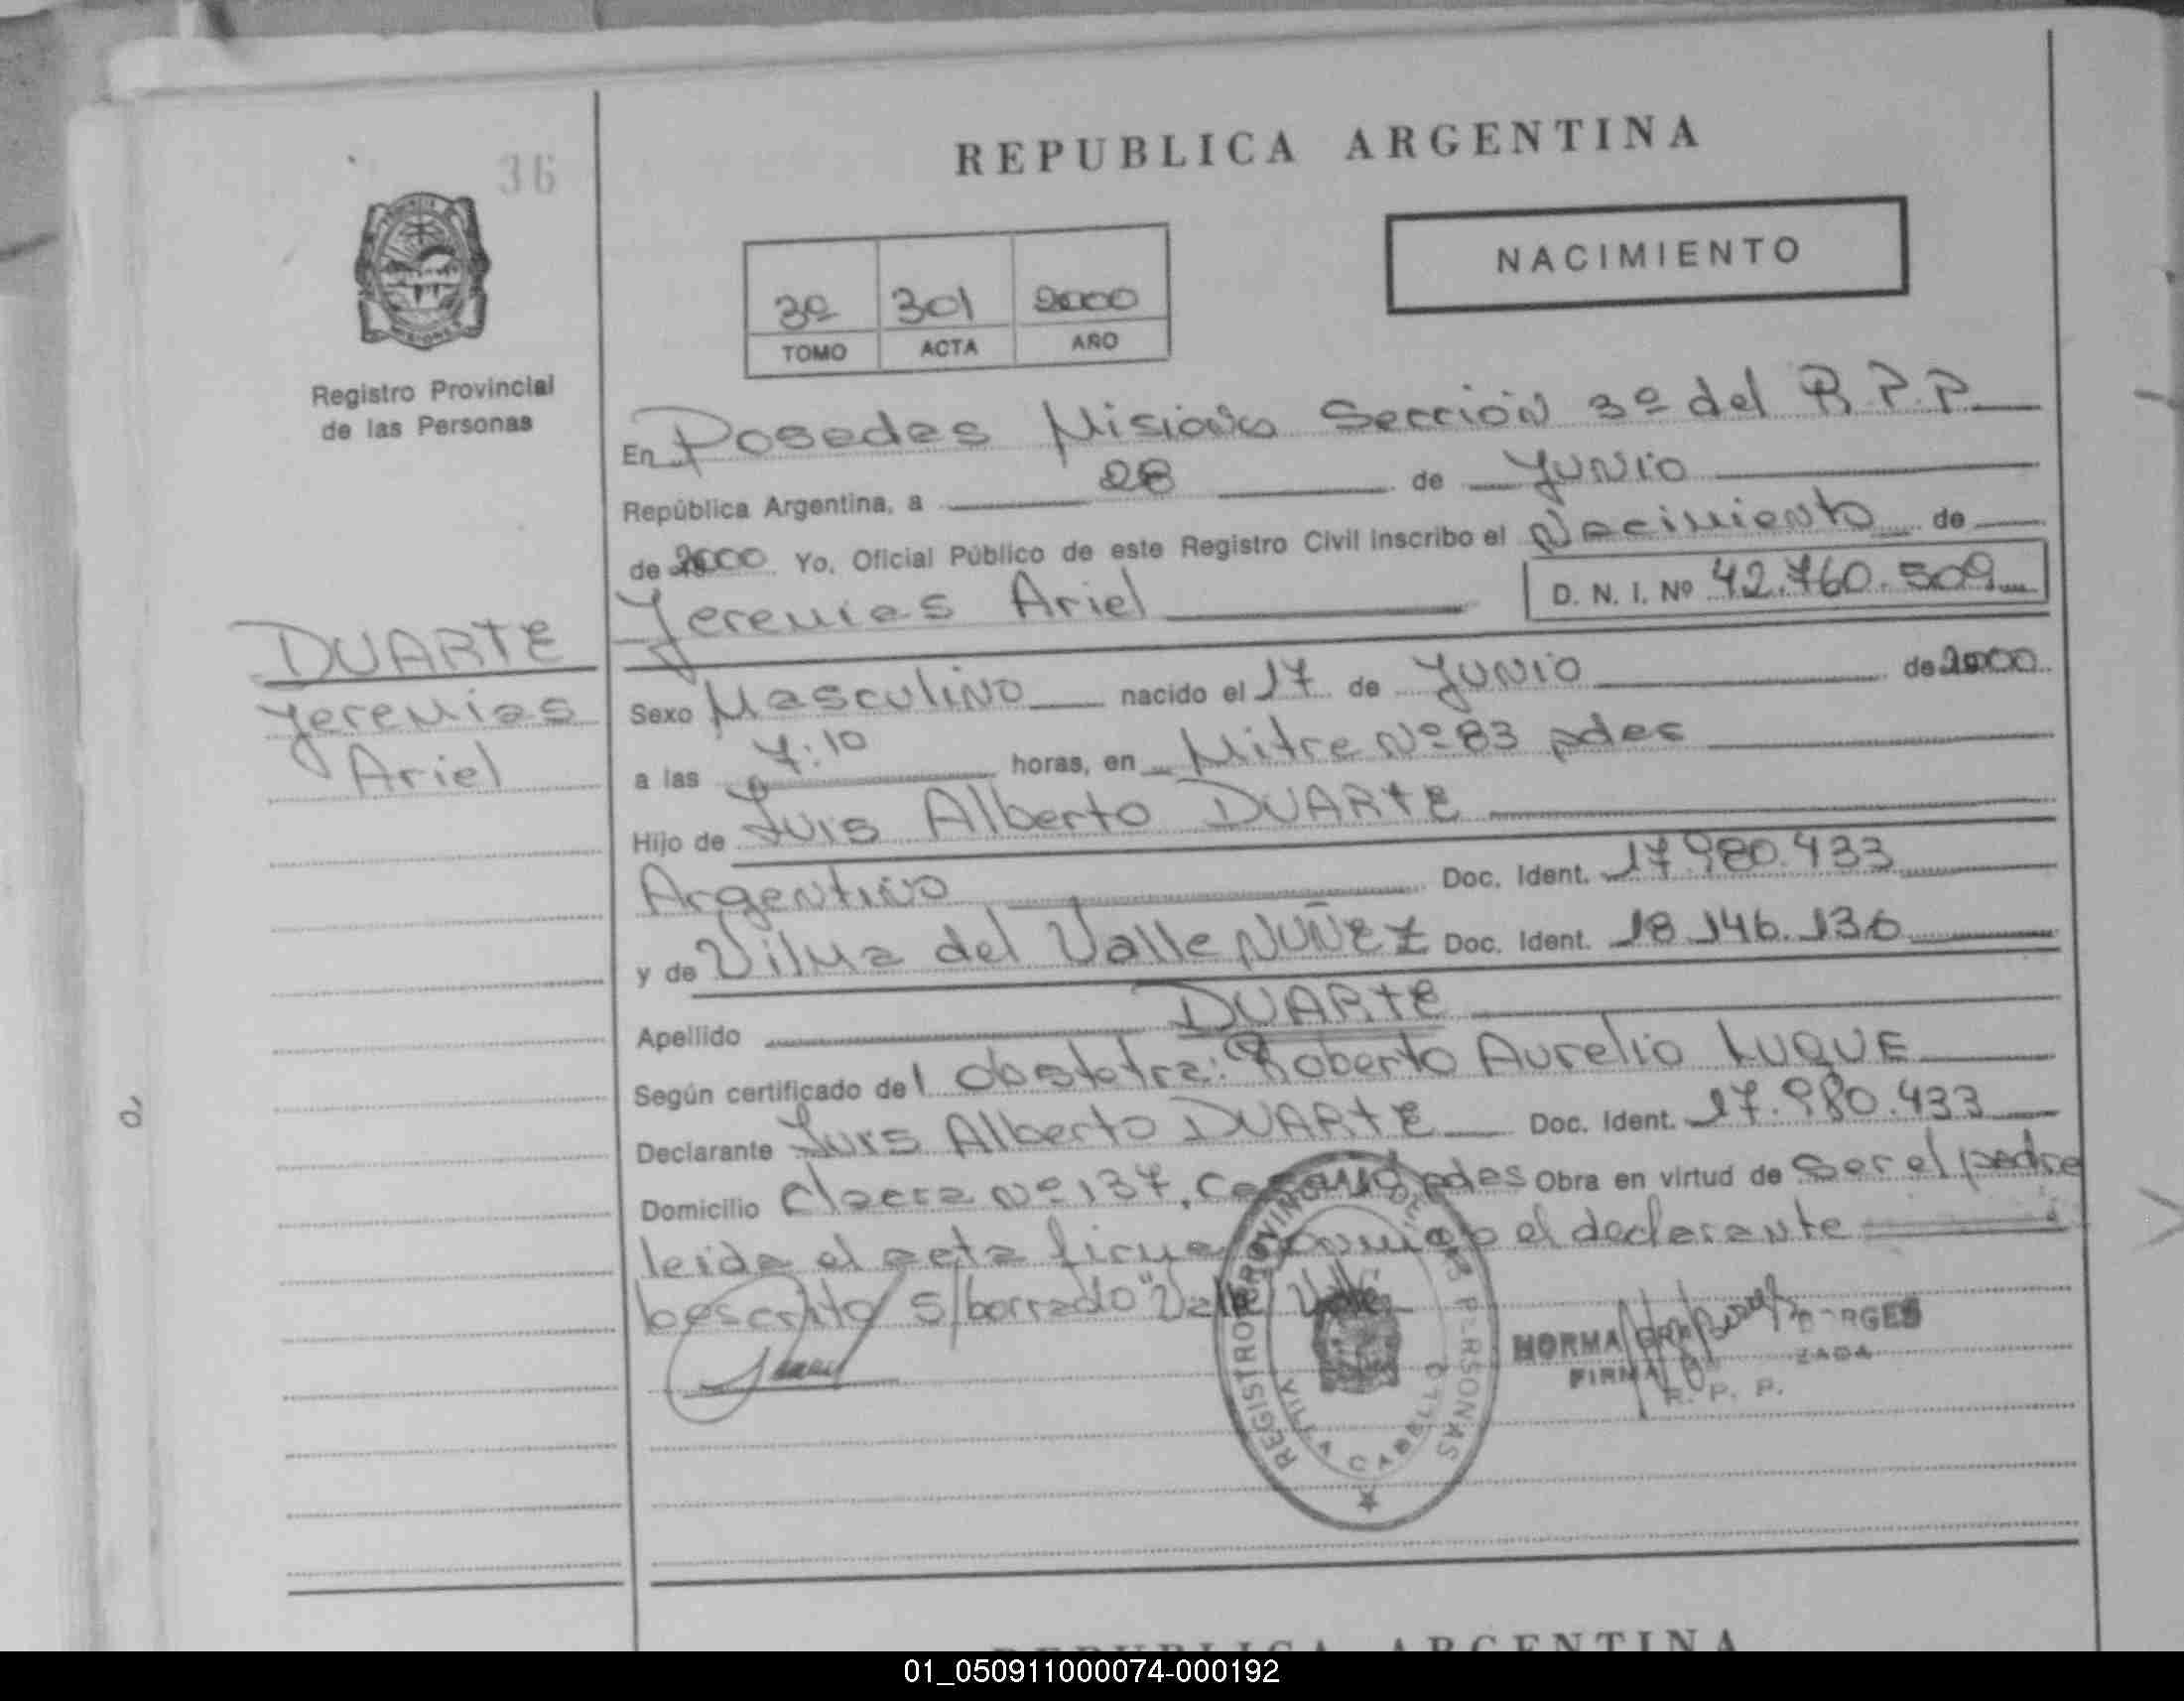 36
REPUBLICA ARGENTINA
NACIMIENTO
3º 301 2000
TOMO ACTA AÑO
Registro Provincial
de las Personas
En Posadas Misiones Sección 3º del R.P.P.
República Argentina, a 28 de Junio
de 2000 Yo, Oficial Público de este Registro Civil inscribo el Nacimiento de
Jeremias Ariel D. N. I. Nº 42.760.509
DUARTE
Jeremias
Ariel
Sexo Masculino nacido el 17 de Junio de 2000
a las 7:10 horas, en Mitre Nº 83 pdas
Hijo de Luis Alberto DUARTE
Argentino Doc. Ident. 17.980.433
y de Vilma del Valle NUÑEZ Doc. Ident. 18.146.136
Apellido DUARTE
Según certificado del Obstetra: Roberto Aurelio LUQUE
Declarante Luis Alberto DUARTE Doc. Ident. 17.980.433
Domicilio Nº 137, pdas Obra en virtud de ser el padre
leida el acta firma conmigo el declarante
s/borrado "Valle" Valle
REGISTRO PROVINCIAL DE LAS PERSONAS
VILLA CABELLO
NORMA
FIRMA
R. P. P.
REPUBLICA ARGENTINA
01_050911000074-000192